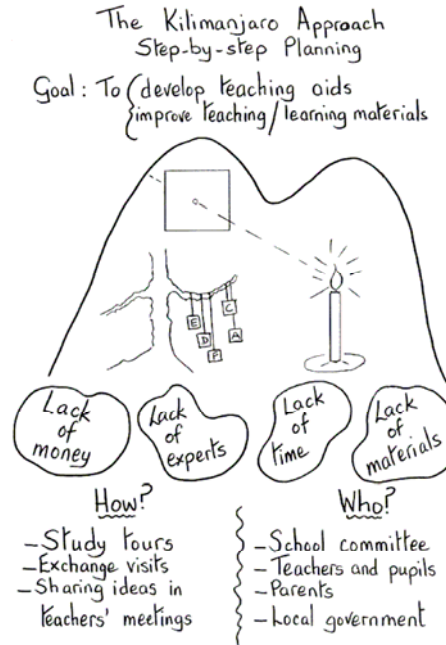 The Kilimanjaro Approach
Step-by-step Planning
Goal: To develop teaching aids
improve teaching/learning materials
C
E
D
A
F
Lack
of
money
Lack
of
experts
Lack
of
time
Lack
of
materials
How?
-Study tours
-Exchange visits
-Sharing ideas in
teachers' meetings
Who?
-School committee
-Teachers and pupils
-Parents
-Local government